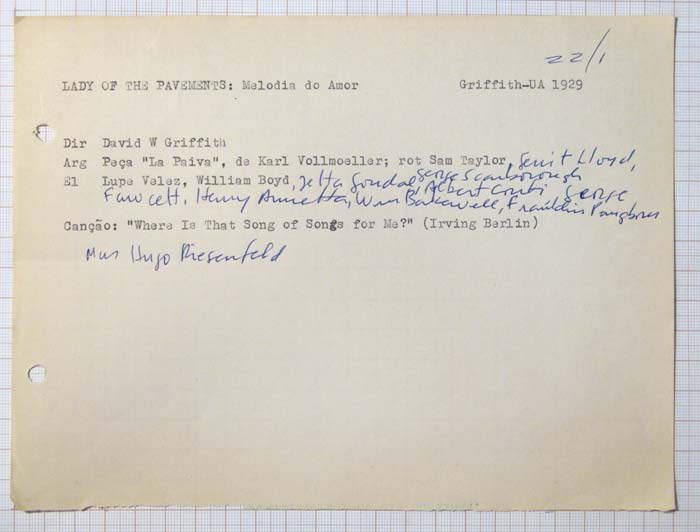 22/1
LADY OF THE PAVEMENTS: Melodia do Amor Griffith-UA 1929
Dir David W Griffith
Arg Peça "La Paiva", de Karl Vollmoeller; rot Sam Taylor, Gerrit Lloyd,
George Scarborough
El Lupe Velez, William Boyd, Jetta Goudal, Albert Conti, George
Fawcett, Henry Armetta, Wm Bakewell, Franklin Pangborn
Canção: "Where Is That Song of Songs for Me?" (Irving Berlin)
Mus Hugo Riesenfeld